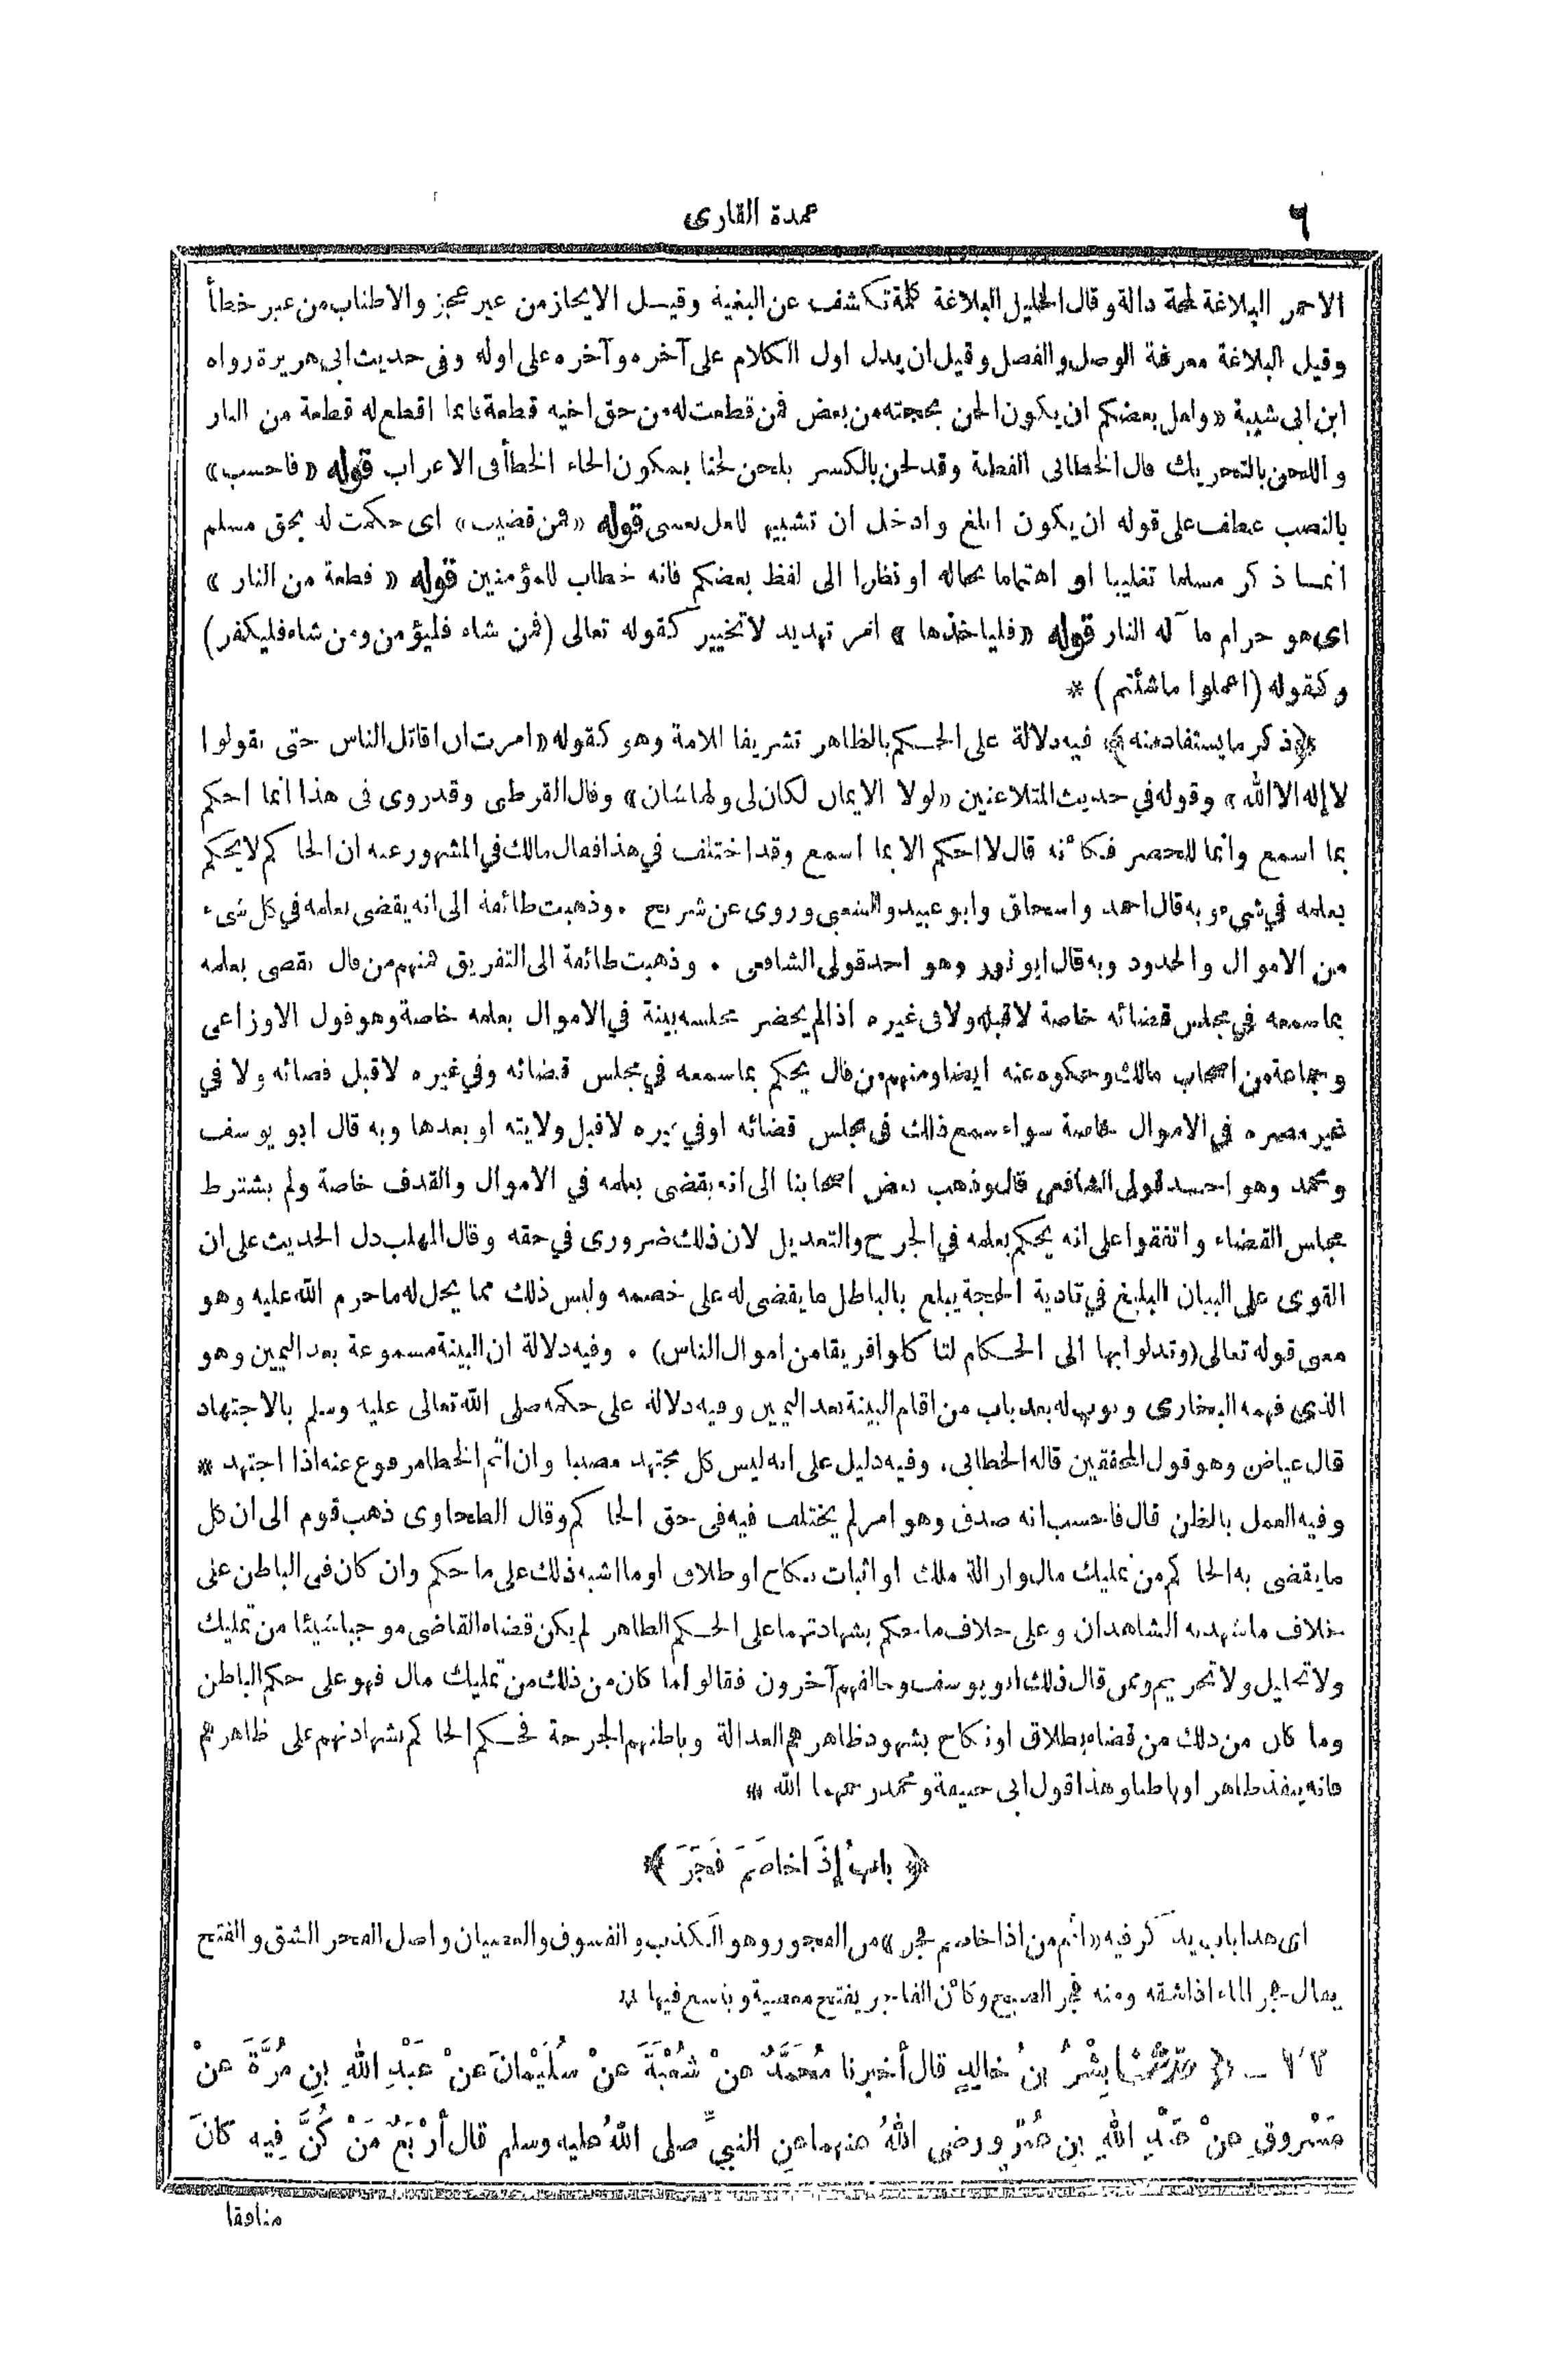 ٦
عمدة القارى
الاحمر البلاغة لمحة دالة وقال الخليل البلاغة كلمة تكشف عن البغية وقيل الايجاز من غير عجز والاطناب من غير خطأ
وقيل البلاغة معرفة الوصل والفصل وقيل ان يدل اول الكلام على آخره وآخره على اوله وفى حديث ابى هريرة رواه
ابن ابى شيبة «ولعل بعضكم ان يكون الحن بحجته من بعض فمن قطعت له من حق اخيه قطعة فانما اقطع له قطعة من النار
واللحن بالتحريك قال الخطابى الفطنة وقد لحن بالكسر يلحن لحنا بسكون الحاء الخطأ فى الاعراب قوله «فاحسب»
بالنصب عطف على قوله ان يكون ابلغ وادخل ان تشبيها للعل بعسى قوله «فمن قضيت» اى حكمت له بحق مسلم
انما ذكر مسلما تغليبا او اهتماما بحاله او نظرا الى لفظ بعضكم فانه خطاب للمؤمنين قوله «قطعة من النار»
اى هو حرام مآ له النار قوله «فلياخذها» امر تهديد لا تخيير كقوله تعالى (فمن شاء فليؤمن ومن شاء فليكفر)
وكقوله (اعملوا ماشئتم) *
﴿ذكر ما يستفاد منه﴾ فيه دلالة على الحكم بالظاهر تشريفا للامة وهو كقوله «امرت ان اقاتل الناس حتى يقولوا
لا إله الا الله» وقوله في حديث المتلاعنين «لولا الايمان لكان لى ولها شان» وقال القرطبى وقد روى فى هذا انما احكم
بما اسمع وانما للحصر فكأنه قال لا احكم الا بما اسمع وقد اختلف في هذا فقال مالك في المشهور عنه ان الحاكم لا يحكم
بعلمه في شيء وبه قال احمد واسحاق وابو عبيد والشعبى وروى عن شريح . وذهبت طائفة الى انه يقضى بعلمه في كل شىء
من الاموال والحدود وبه قال ابو ثور وهو احد قولى الشافعى . وذهبت طائفة الى التفريق فمنهم من قال يقضى بعلمه
بما سمعه في مجلس قضائه خاصة لا قبله ولا فى غيره اذا لم يحضر مجلسه بينة في الاموال بعلمه خاصة وهو قول الاوزاعى
وجماعة من اصحاب مالك وحكوه عنه ايضا ومنهم من قال يحكم بما سمعه في مجلس قضائه وفي غيره لا قبل قضائه ولا في
غير مصره في الاموال خاصة سواء سمع ذلك فى مجلس قضائه اوفي غيره لا قبل ولايته او بعدها وبه قال ابو يوسف
ومحمد وهو احد قولى الشافعى قال وذهب بعض اصحابنا الى انه يقضى بعلمه في الاموال والقذف خاصة ولم يشترط
مجلس القضاء واتفقوا على انه يحكم بعلمه في الجرح والتعديل لان ذلك ضرورى في حقه وقال المهلب دل الحديث على ان
القوى على البيان البليغ في تادية الحجة يبلغ بالباطل ما يقضى له على خصمه وليس ذلك مما يحل له ما حرم الله عليه وهو
معنى قوله تعالى (وتدلوا بها الى الحكام لتاكلوا فريقا من اموال الناس) . وفيه دلالة ان البينة مسموعة بعد اليمين وهو
الذي فهمه البخارى وبوب له بعد باب من اقام البينة بعد اليمين وفيه دلالة على حكمه صلى الله تعالى عليه وسلم بالاجتهاد
قال عياض وهو قول المحققين قاله الخطابى. وفيه دليل على انه ليس كل مجتهد مصيبا وان اثم الخطا مرفوع عنه اذا اجتهد *
وفيه العمل بالظن قال فاحسب انه صدق وهو امر لم يختلف فيه فى حق الحاكم وقال الطحاوى ذهب قوم الى ان كل
ما يقضى به الحاكم من تمليك مال وازالة ملك او اثبات نكاح او طلاق او ما اشبه ذلك على ما حكم وان كان فى الباطن على
خلاف ما شهد به الشاهدان وعلى خلاف ما حكم بشهادتهما على الحكم الظاهر لم يكن قضاء القاضى موجبا شيئا من تمليك
ولا تحليل ولا تحريم وممن قال ذلك ابو يوسف وخالفهم آخرون فقالوا ما كان من ذلك من تمليك مال فهو على حكم الباطن
وما كان من ذلك من قضاء بطلاق او نكاح بشهود ظاهرهم العدالة وباطنهم الجرحة فحكم الحاكم بشهادتهم على ظاهرهم
فانه ينفذ ظاهرا وباطنا وهذا قول ابى حنيفة ومحمد رحمهما الله *
﴿ بابُ إِذَا خاصَمَ فَجَرَ ﴾
اى هذا باب يذكر فيه «اثم من اذا خاصم فجر» من الفجور وهو الكذب والفسوق والعصيان واصل الفجر الشق والفتح
يقال فجر الماء اذا شقه ومنه فجر الصبح وكأن الفاجر يفتح معصية ويتسع فيها *
﴿ حدّثنا بِشْرُ بنُ خالِدٍ قال أخبرنا مُحَمَّدٌ عنْ شُعْبَةَ عنْ سُلَيْمانَ عنْ عَبْدِ اللهِ بنِ مُرَّةَ عنْ
مَسْرُوقٍ عنْ عَبْدِ اللهِ بنِ عَمْرٍو رضى اللهُ عنهما عنِ النبيِّ صلى اللهُ عليه وسلم قال أرْبَعٌ مَنْ كُنَّ فِيهِ كانَ
منافقا